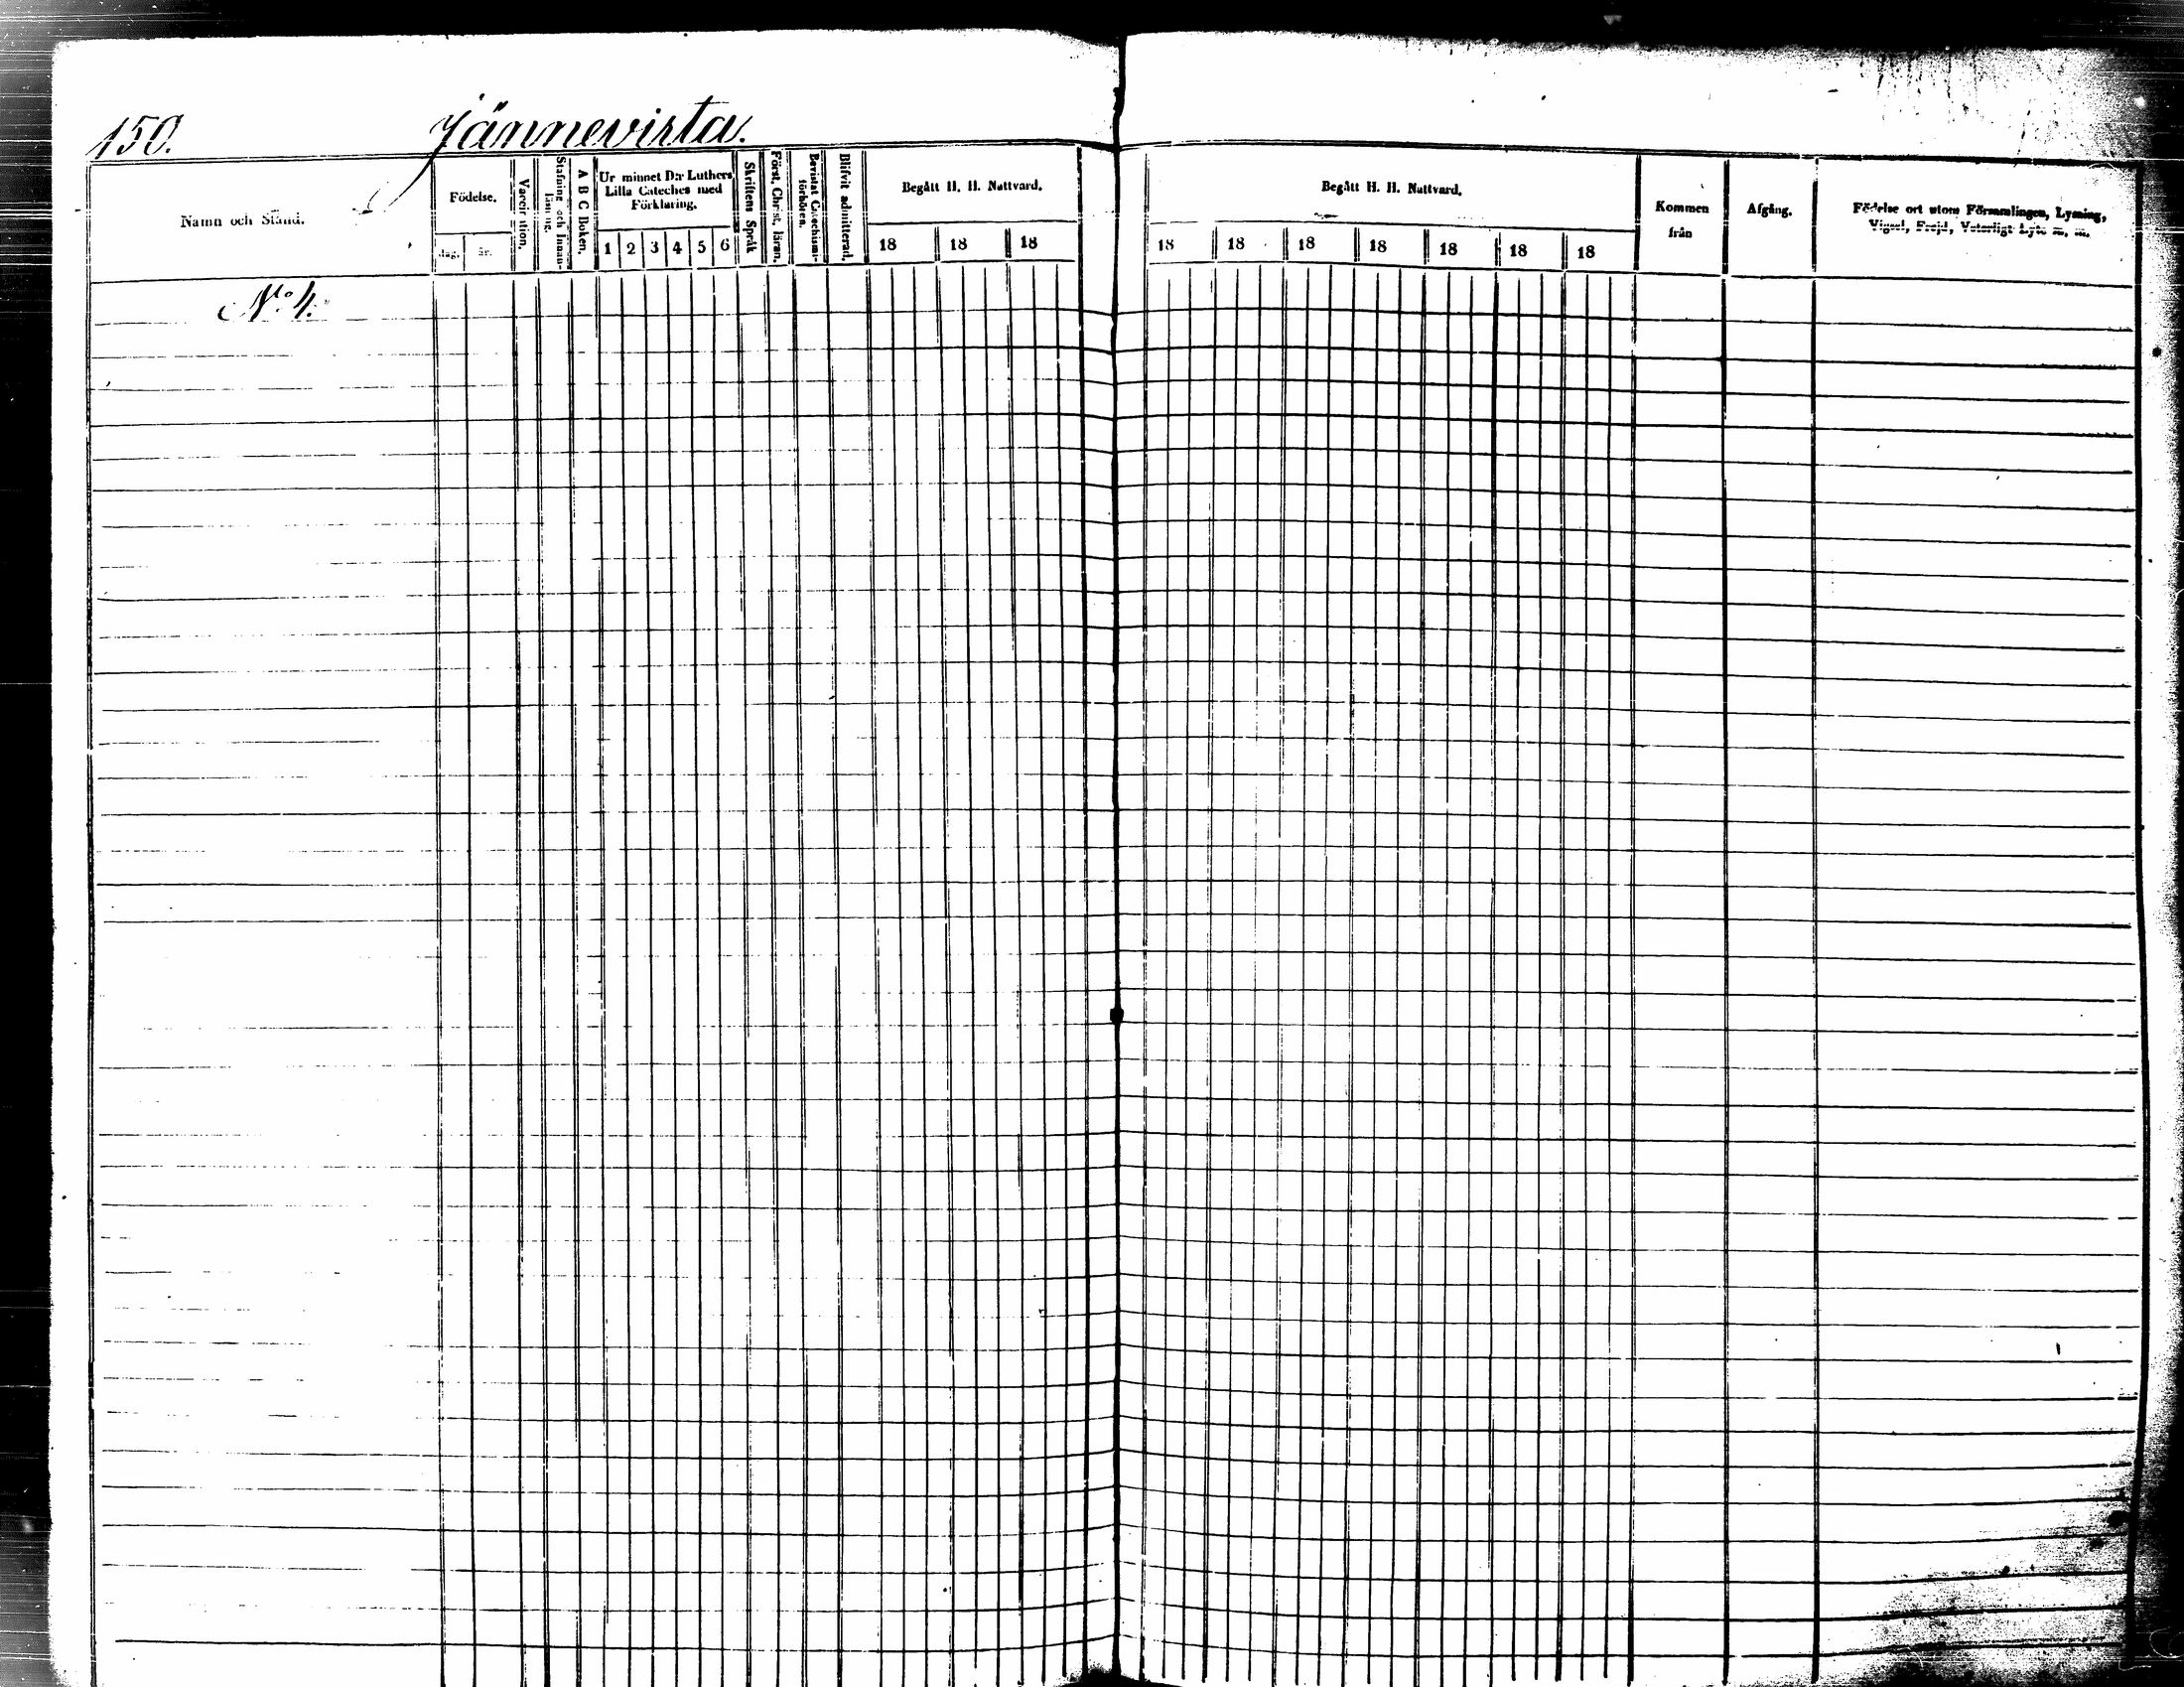 150. Jännevirta.
Namn och Stånd.
Födelse.
dag. år.
Vaccination.
Stafning och Innanläsning.
A B C Boken.
Ur minnet D:r Luthers
Lilla Cateches med
Förklaring.
1 2 3 4 5 6
Skriftens Språk
Först. Christ. läran.
Bevistat Catechismi-
förhören.
Blifvit admitterad.
Begått H. H. Nattvard.
18 18 18
Begått H. H. Nattvard.
18 18 18 18 18 18 18
Kommen
från
Afgång.
Födelse ort utom Församlingen, Lysning,
Vigsel, Frejd, Veterligt Lyte m. m.
No 4.